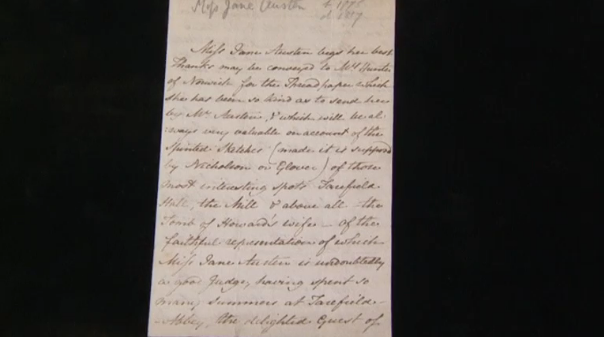 Miss Jane Austen b. 1775
d. 1817
Miss Jane Austen begs her best
Thanks may be conveyed to Mrs Hunter
of Norwich for the Threadpaper which
she has been so kind as to send her
by Mr Austen, & which will be al-
ways very valuable on account of the
spirited Sketches (made it is supposed
by Nicholson or Glover) of those
most interesting spots Tarefield
Hall, the Mill & above all the
Tomb of Howard's wife - of the
faithful representation of which
Miss Jane Austen is undoubtedly
a good Judge, having spent so
many summers at Tarefield
Abbey, the delighted Guest of